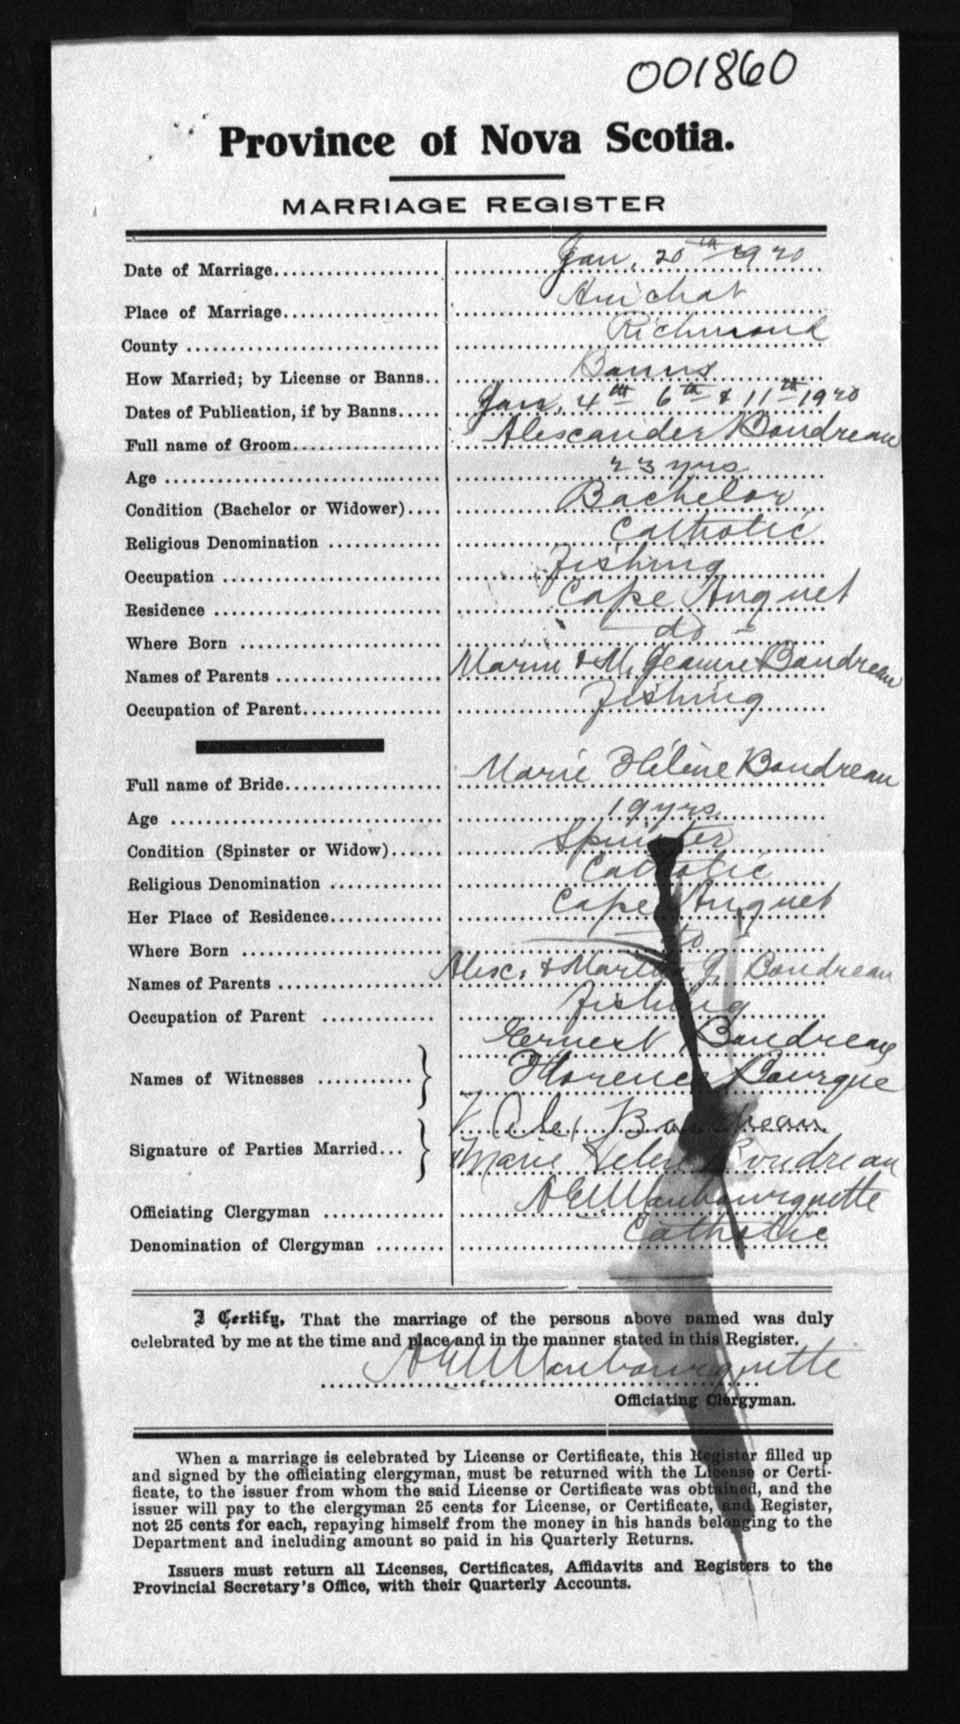 001860
Province of Nova Scotia.
MARRIAGE REGISTER
Date of Marriage.................... Jan, 20th 1920
Place of Marriage.................. Arichat
County ................................ Richmond
How Married; by License or Banns.. Banns
Dates of Publication, if by Banns..... Jan, 4th 6th & 11th 1920
Full name of Groom.................... Alexander Boudreau
Age .................................... 23 yrs
Condition (Bachelor or Widower).... Bachelor
Religious Denomination .............. Catholic
Occupation ............................ Fishing
Residence .............................. Cape Auguet
Where Born .......................... - do -
Names of Parents .................... & M. Jeanne Boudreau
Occupation of Parent................. Fishing
Full name of Bride................... Marie Hélène Boudreau
Age .................................... 19 yrs
Condition (Spinster or Widow)...... Spinster
Religious Denomination .............. Catholic
Her Place of Residence.............. Cape Auguet
Where Born .......................... do -
Names of Parents .................... Alex. & J. Boudreau
Occupation of Parent ................ Fishing
Ernest Boudreau
Names of Witnesses ........... } Florence
Signature of Parties Married... } Alex Boudreau
Marie Helene Boudreau
Officiating Clergyman ...............
Denomination of Clergyman ........ Catholic
I Certify, That the marriage of the persons above named was duly
celebrated by me at the time and place and in the manner stated in this Register.
Officiating Clergyman.
When a marriage is celebrated by License or Certificate, this Register filled up
and signed by the officiating clergyman, must be returned with the License or Certi-
ficate, to the issuer from whom the said License or Certificate was obtained, and the
issuer will pay to the clergyman 25 cents for License, or Certificate, and Register,
not 25 cents for each, repaying himself from the money in his hands belonging to the
Department and including amount so paid in his Quarterly Returns.
Issuers must return all Licenses, Certificates, Affidavits and Registers to the
Provincial Secretary's Office, with their Quarterly Accounts.